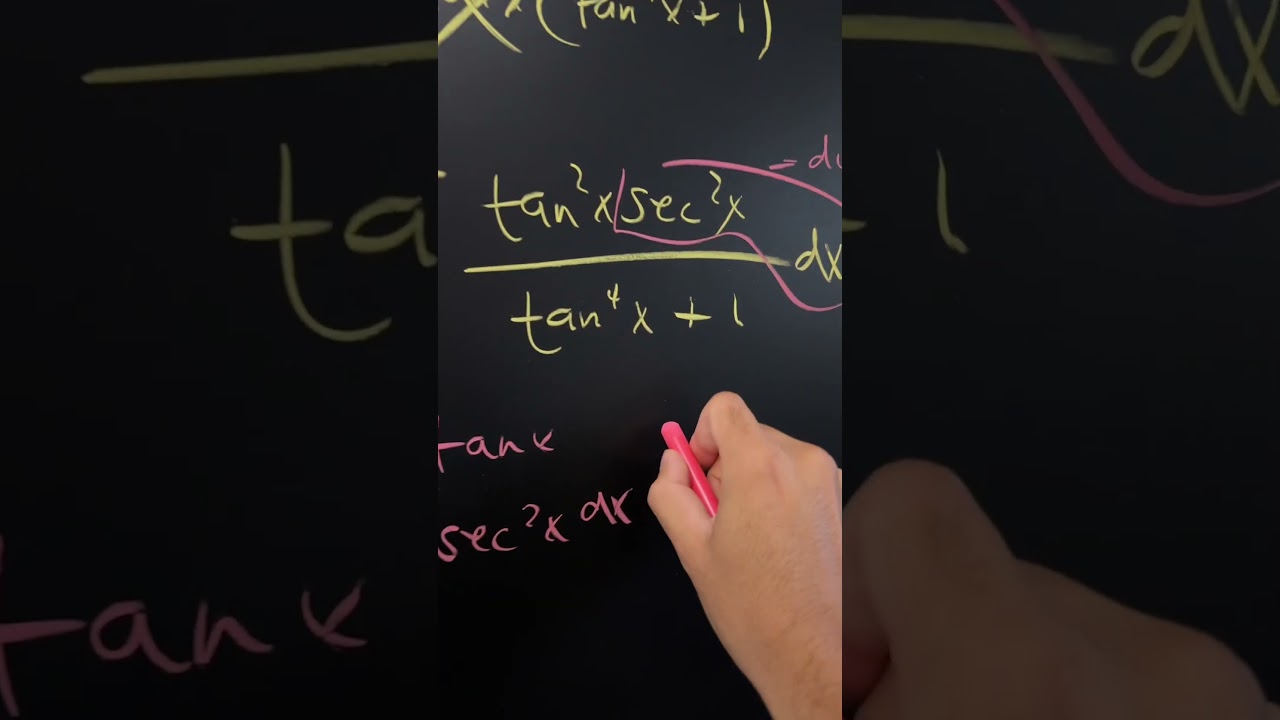 (tan²x + 1)
= du
tan²x sec²x
dx
tan⁴x + 1
tanx
sec²x dx